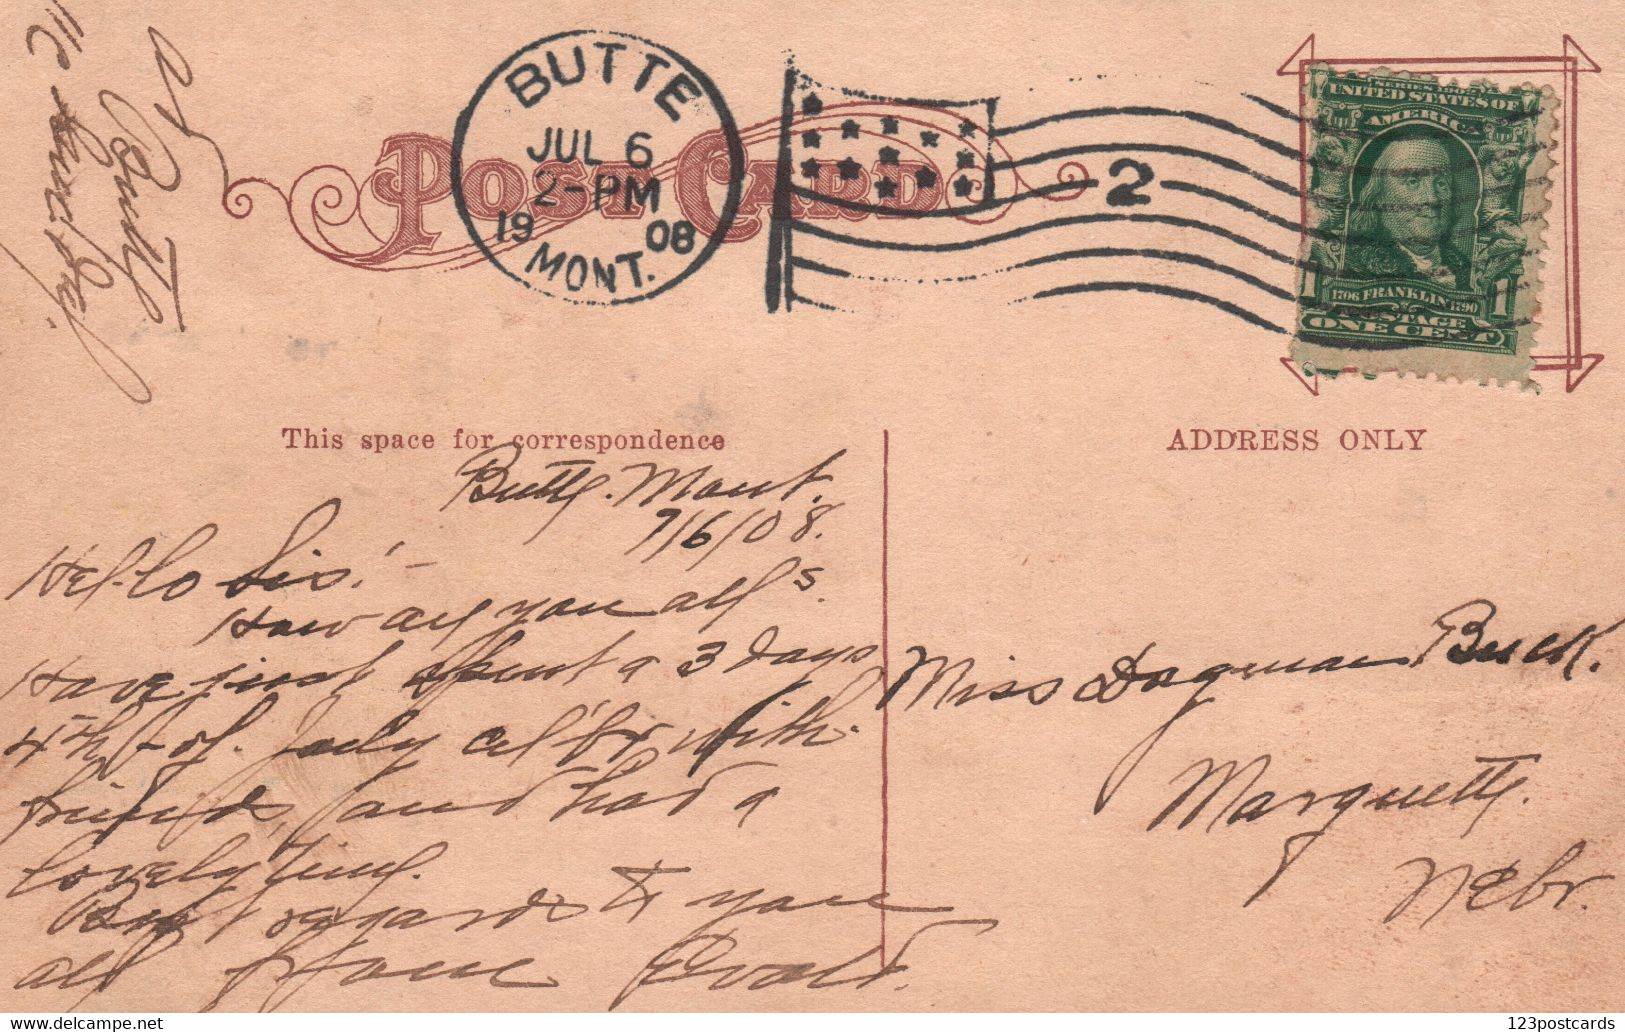 BUTTE
JUL 6
2-PM
19 08
MONT.
2
POST CARD
SERIES 1902
UNITED STATES OF
AMERICA
1706 FRANKLIN 1790
POSTAGE
1 1
ONE CENT
This space for correspondence
ADDRESS ONLY
Butte. Mont.
7/6/08.
Hel-lo Sis! -
How are you all
Have just spent a 3 days
4th - of. July with
friends, and had a
lovely time.
Best regards to you
all from Evald.
Miss Dagmar Buck.
Marquette.
Nebr.
123postcards